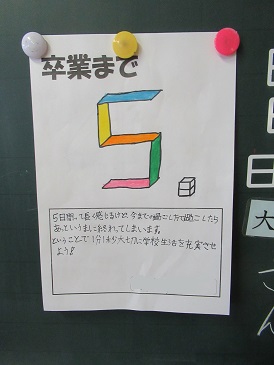 卒業まで
5
5日間って長く感じるけど、今までの過ごし方で過ごしたら
あっというまにおわってしまいます。
ということで1分1秒大切に学校生活を充実させ
よう!
日
大